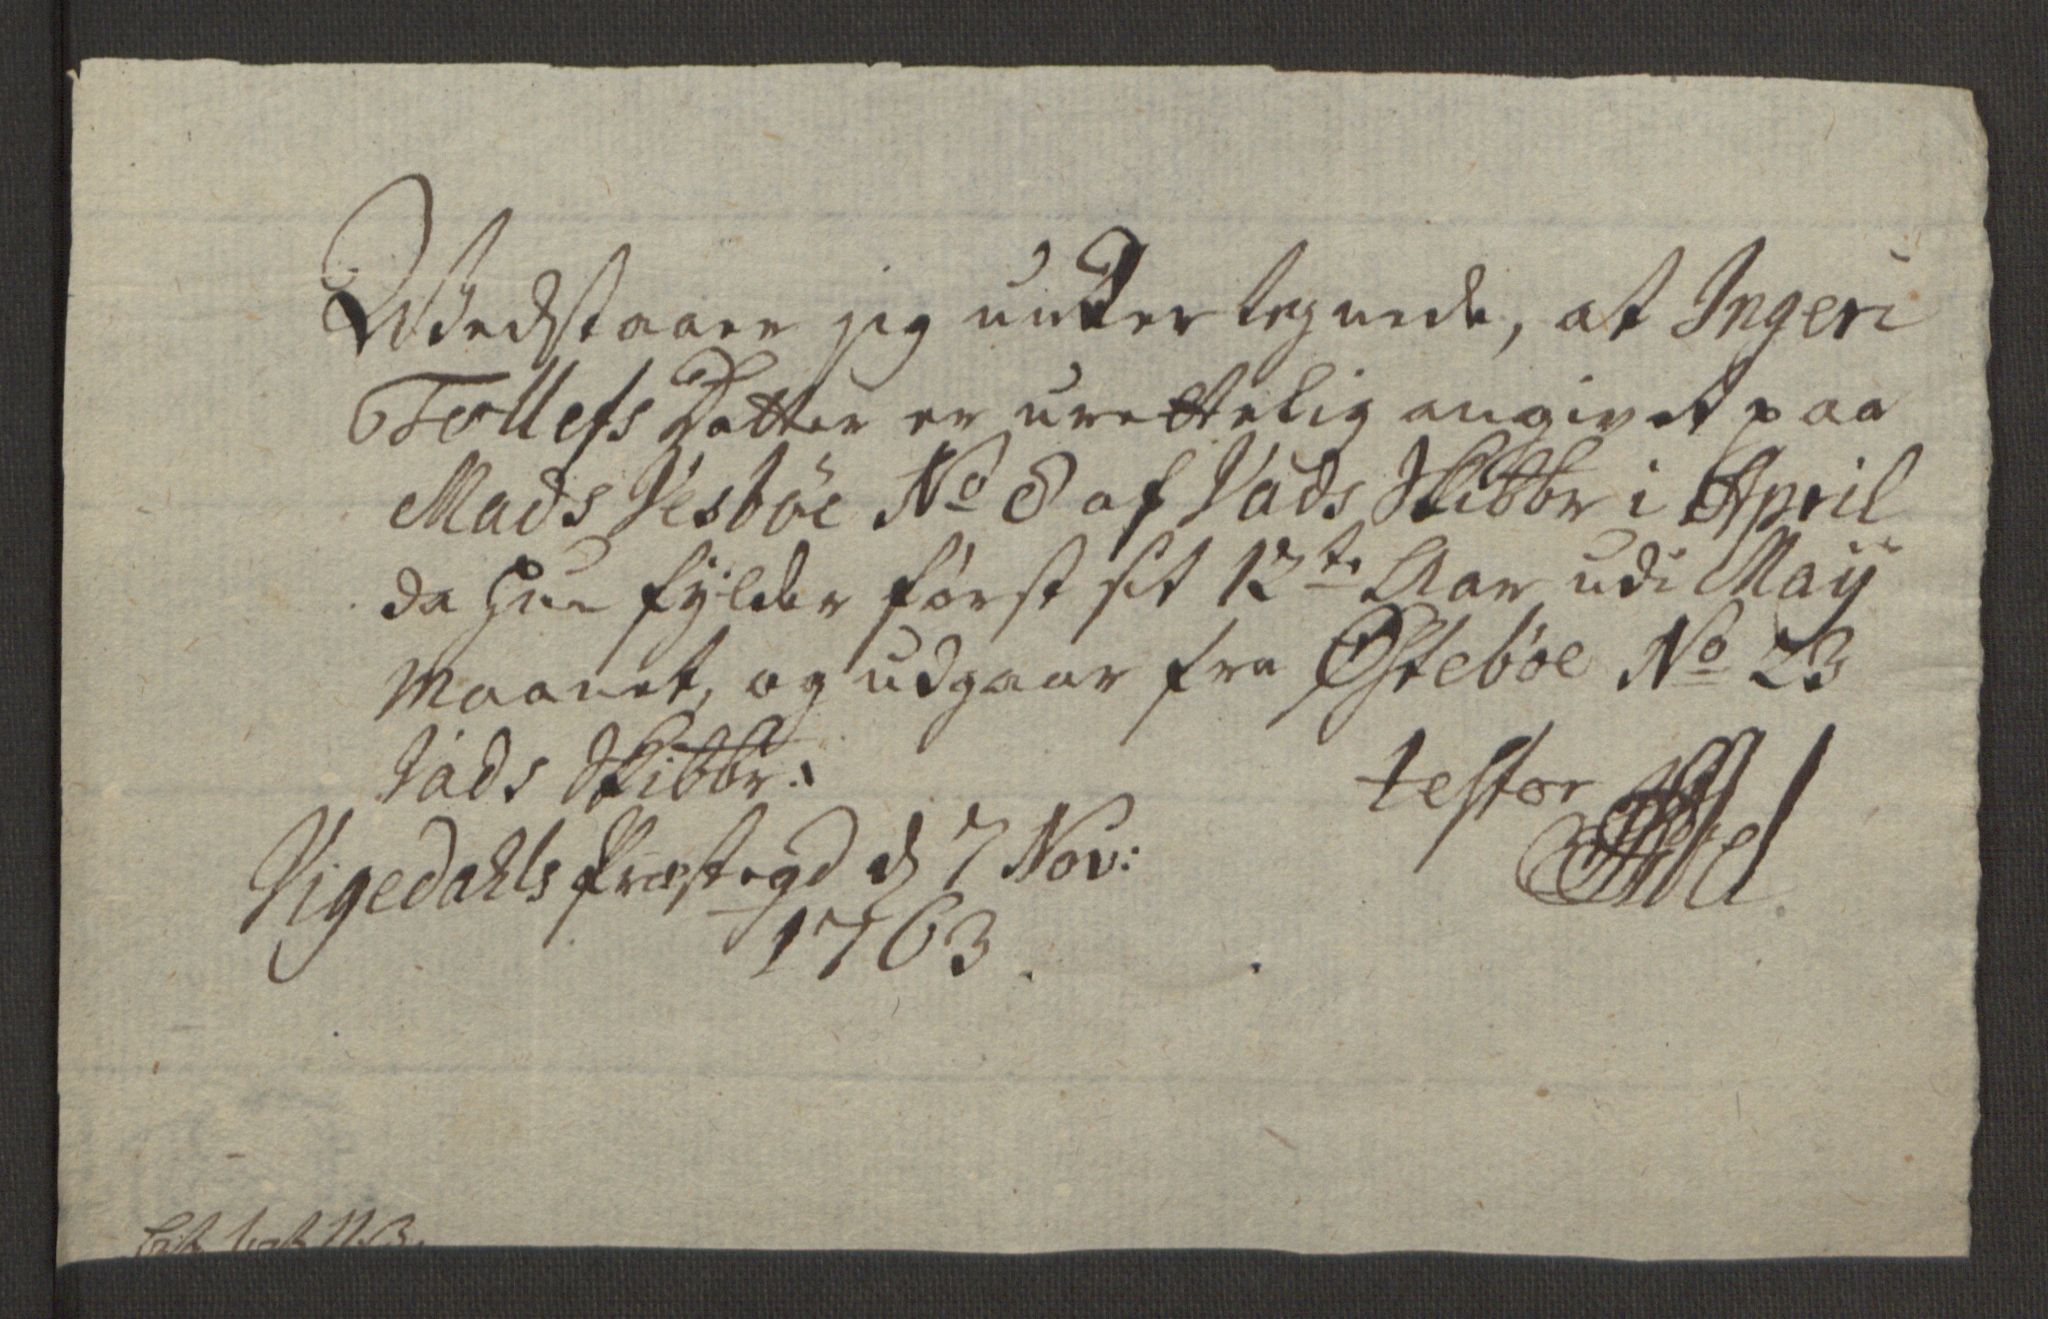 Wedstaaer jeg undertegnede, at Ingeri
Tollefs Datter er urettelig angivet paa
Mads Vesbøe No 8 af Vads Skibbr i April
da Hun fylder først sit 12te Aar udi Maij
Maanet, og udgaar fra Østebøe No 23
Vads Skibbr:
testor
Vigedahls Præstegd d 7 Nov:
1763.